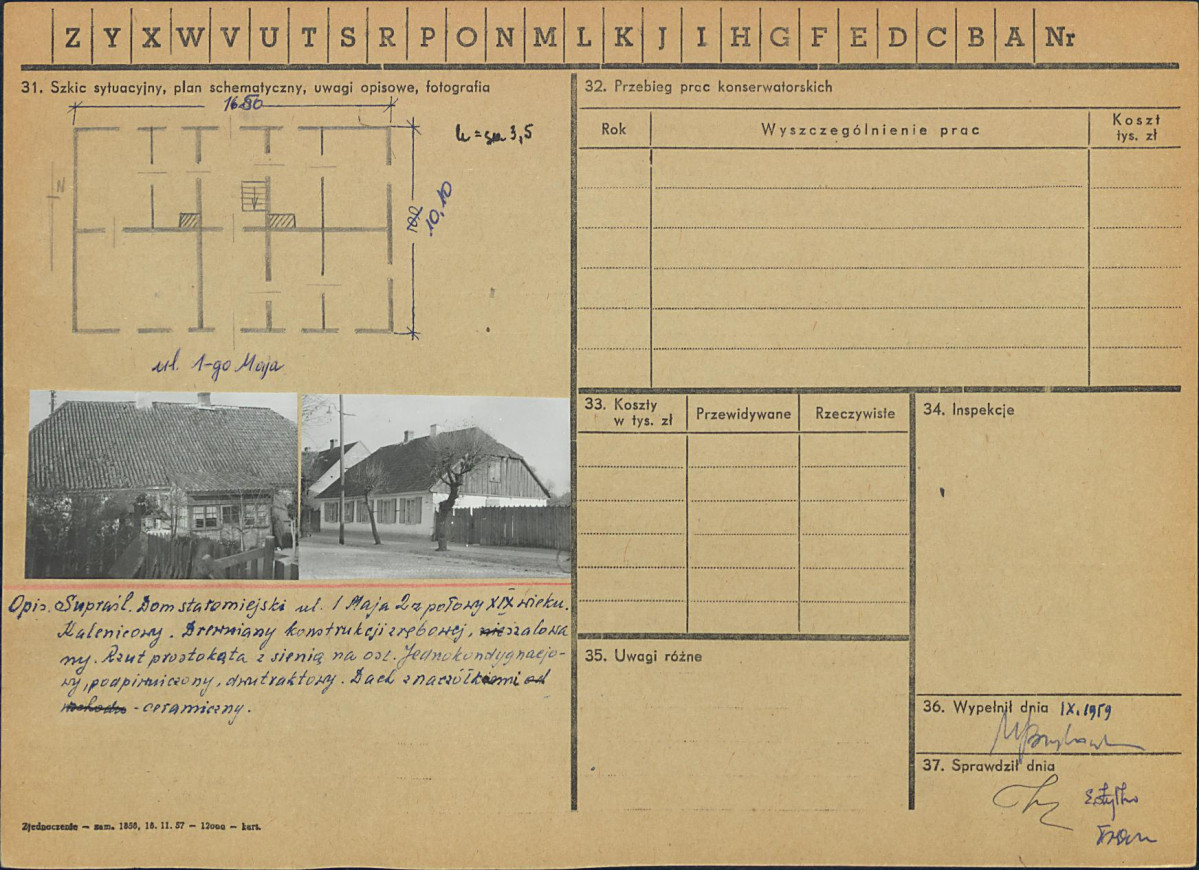 Z Y X W V U T S R P O N M L K J I H G F E D C B A Nr
31. Szkic sytuacyjny, plan schematyczny, uwagi opisowe, fotografia
16.50
h = 3,5
N
10,10
ul. 1-go Maja
Opis. Supraśl. Dom staromiejski ul. 1 Maja 2 z połowy XIX wieku.
Kalenicowy. Drewniany konstrukcji zrębowej, szalowa
ny. Rzut prostokąta z sienią na osi. Jednokondygnacjo-
wy, podpiwniczony, dwutraktowy. Dach z naczółkami od
wschodu - ceramiczny.
Zjednoczenie – zam. 1856, 16. 11. 57 – 12000 – kart.
32. Przebieg prac konserwatorskich
Rok
Wyszczególnienie prac
Koszt
tys. zł
33. Koszty
w tys. zł
Przewidywane
Rzeczywiste
34. Inspekcje
35. Uwagi różne
36. Wypełnił dnia IX.1959
37. Sprawdził dnia